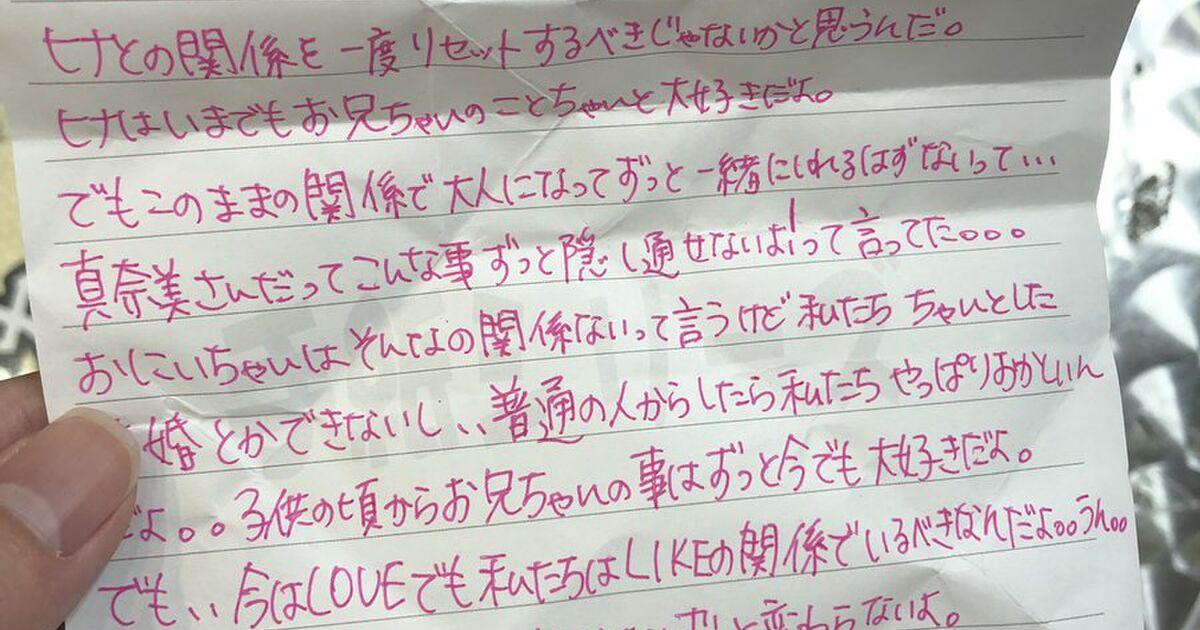 ヒナとの関係を一度リセットするべきじゃないかと思うんだ。
ヒナはいまでもお兄ちゃんのことちゃんと大好きだよ。
でもこのままの関係で大人になってずっと一緒にいれるはずないって…
真奈美さんだってこんな事ずっと隠し通せないよ!って言ってた。。。
おにいちゃんはそんなの関係ないって言うけど私たち ちゃんとした
婚とかできないし、、普通の人からしたら私たち やっぱりおかしいん
だよ。。子供の頃からお兄ちゃんの事はずっと今でも大好きだよ。
でも、、今はLOVEでも私たちはLIKEの関係でいるべきなんだよ。。うん。。
変わらないよ。